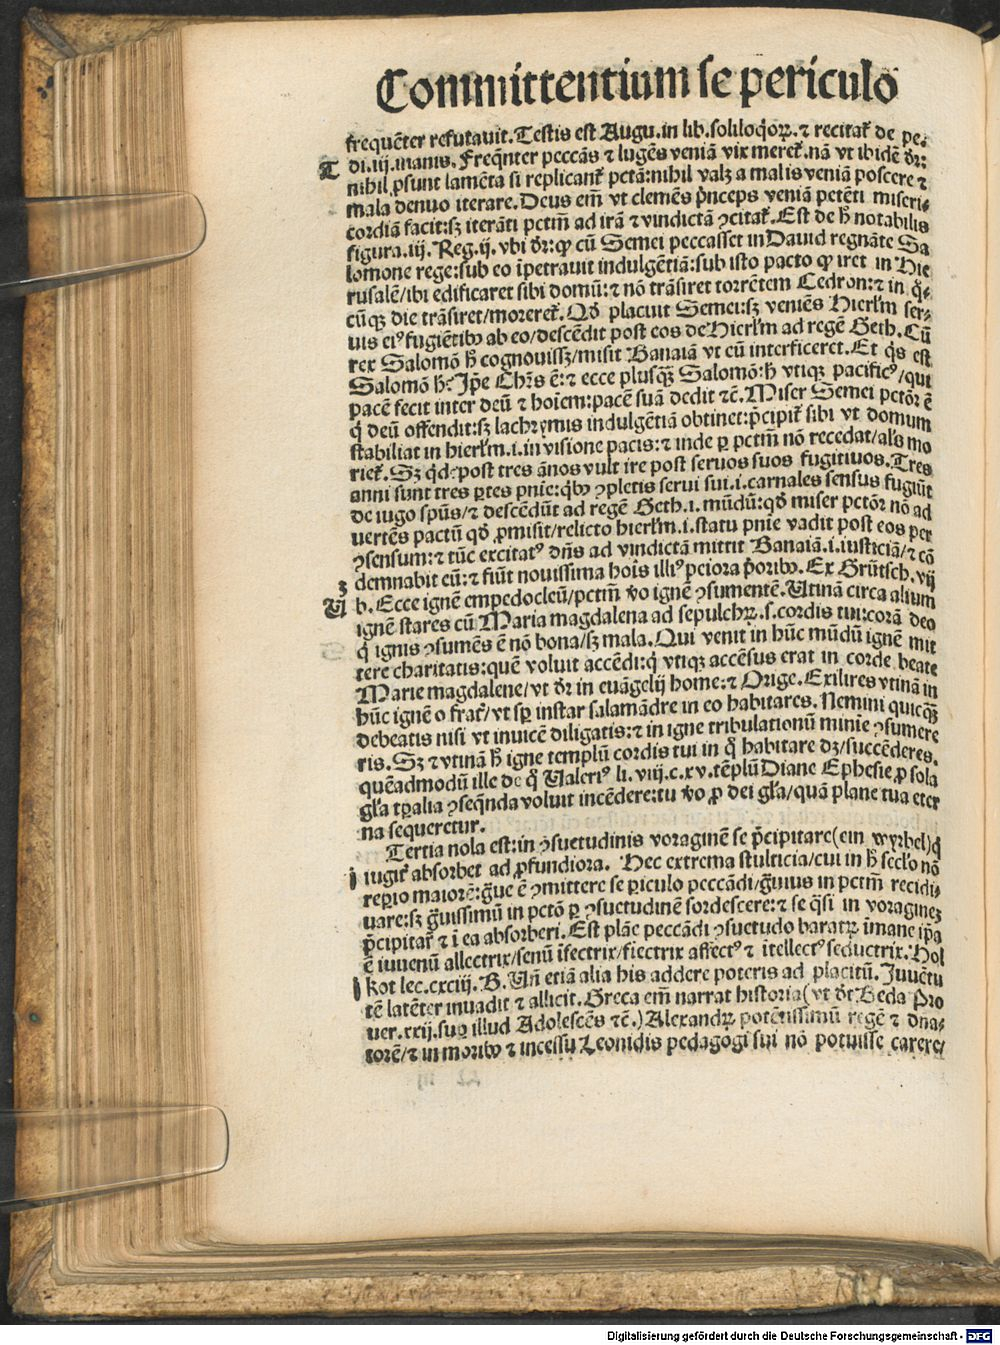 Committentium se periculo
frequēter refutavit. Testis est Augu. in lib. soliloq̄oꝝ. ⁊ recitat̄ de pe⸗
T
di. iij. inanis. Freq̄nter peccās ⁊ lugēs veniā vix meret̄. nā vt ibidē dr̄:
nihil ꝓsunt lamēta si replicant̄ pctā: nihil valꝫ a malis veniā poscere ⁊
mala denuo iterare. Deus em̄ vt clemēs p̄nceps veniā petēti miseri⸗
cordiā facit: sꝫ iterāti pctm̄ ad irā ⁊ vindictā ꝯcitat̄. Est de h̄ notabilis
figura. iij. Reg. ij. vbi dr̄: ꝙ cū Semei peccasset in Dauid regnāte Sa
lomone rege: sub eo īpetrauit indulgētiā: sub isto pacto ꝙ iret in Hie
rusalē/ ibi edificaret sibi domū: ⁊ nō trāsiret torrētem Cedron: ⁊ in q̄⸗
cūqꝫ die trāsiret/ moreret̄. Qd̄ placuit Semei: sꝫ veniēs Hierl̄m ser⸗
uis eiꝰ fugiētibꝰ ab eo/ descēdit post eos de Hierl̄m ad regē Geth. Cū
rex Salomō h̄ cognouissꝫ/ misit Banaiā vt cū interficeret. Et q̄s est
Salomō hic? Ip̄e Chr̄s ē: ⁊ ecce plusq̄ꝫ Salomō: h̄ vtiqꝫ pacificꝰ/ qui
pacē fecit inter deū ⁊ hoīem: pacē suā dedit ⁊c̄. Miser Semei pctōr ē
q̄ deū offendit: sꝫ lachrymis indulgētiā obtinet: p̄cipit̄ sibi vt domum
stabiliat in hierl̄m. i. in visione pacis: ⁊ inde ꝑ pctm̄ nō recedat/ al̄s mo
riet̄. Sꝫ qd̄? post tres ānos vult ire post seruos suos fugitiuos. Tres
anni sunt tres ꝑtes pnīe: q̄bꝰ ꝯpletis serui sui. i. carnales sensus fugiūt
de iugo spūs/ ⁊ descēdūt ad regē Geth. i. mūdū: qd̄ miser pctōr nō ad
vertēs pactū qd̄ ꝓmisit/ relicto hierl̄m. i. statu pnīe vadit post eos per
ꝯsensum: ⁊ tūc excitatꝰ dn̄s ad vindictā mittit Banaiā. i. iusticiā/ ⁊ cō
demnabit eū: ⁊ fiūt nouissima hoīs illiꝰ peiora p̄oribꝰ. Ex Grūtsch. vij
3
V
h. Ecce ignē empedocleū/ pctm̄ v̄o ignē ꝯsumentē. Vtinā circa alium
ignē stares cū Maria magdalena ad sepulchꝝ. s. cordis tui: corā deo
q̄ ignis ꝯsumēs ē nō bona/ sꝫ mala. Qui venit in hūc mūdū ignē mit
tere charitatis: quē voluit accēdi: q̄ vtiqꝫ accēsus erat in corde beate
Marie magdalene/ vt dr̄ in euāgelij home: ⁊ Orige. Exilires vtinā in
hūc ignē o frat̄/ vt sꝑ instar salamādre in eo habitares. Nemini quicq̄ꝫ
debeatis nisi vt inuicē diligatis: ⁊ in igne tribulationū minīe ꝯsumere
ris. Sꝫ ⁊ vtinā h̄ igne templū cordis tui in q̄ habitare dꝫ/ succēderes.
quēadmodū ille de q̄ Valeriꝰ li. viij. c. xv. tēplū Diane Ephesie ꝓ sola
gl̄a tꝑalia ꝯseq̄nda voluit incēdere: tu v̄o ꝓ dei gl̄a/ quā plane tua eter
na sequeretur.
Tertia nola est: in ꝯsuetudinis voraginē se p̄cipitare (ein wyrbel) q̄
i
iugit̄ absorbet ad ꝓfundiora. Hec extrema stulticia/ cui in h̄ secl̄o nō
reꝑio maiorē: g̃ue ē ꝯmittere se ꝑiculo peccādi/ g̃uius in pctm̄ recidi⸗
uare: sꝫ g̃uissimū in pctō ꝑ ꝯsuetudinē sordescere: ⁊ se q̄si in voraginez
p̄cipitar̄ ⁊ ī ea absorberi. Est plāe peccādi ꝯsuetudo baratꝝ īmane ip̄a
ē iuuenū allectrix/ senū īfectrix/ fictrix affectꝰ ⁊ ītellectꝰ seductrix. Hol
l
kot lec. cxciij. B. Vn̄ etiā alia his addere poteris ad placitū. Juuētu
tē latēter inuadit ⁊ allicit. Greca em̄ narrat historia (vt dr̄t Beda Pro
uer. xxij. suꝑ illud Adolescēs ⁊c̄.) Alexandꝝ potētissimū regē ⁊ dn̄a⸗
torē/ ⁊ in moribꝰ ⁊ incessu Leonidis pedagogi sui nō potuisse carere/
Digitalisierung gefördert durch die Deutsche Forschungsgemeinschaft - DFG